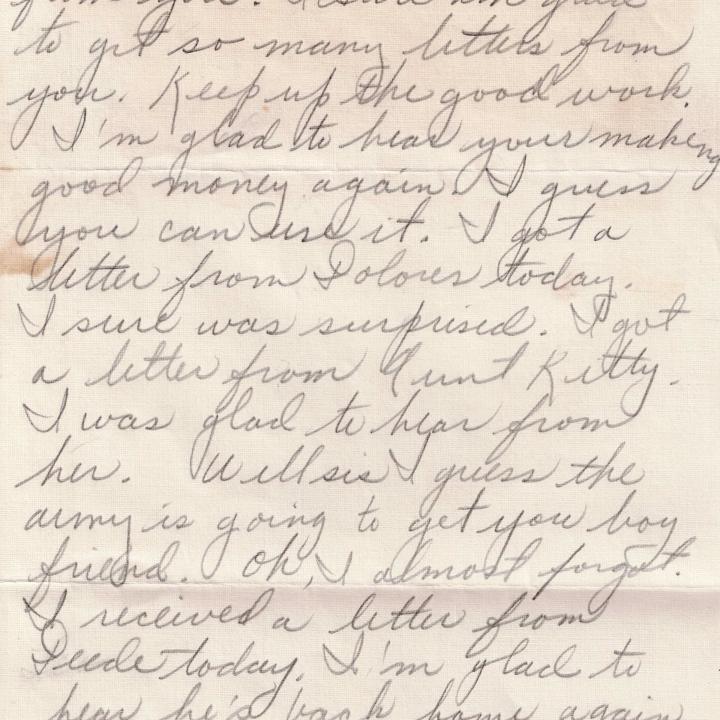 from you. I sure am glad
to get so many letters from
you. Keep up the good work.
I'm glad to hear your making
good money again. I guess
you can use it. I got a
letter from Dolores today.
I sure was surprised. I got
a letter from Aunt Kitty.
I was glad to hear from
her. Well sis I guess the
army is going to get you boy
friend. Oh, I almost forgot.
I received a letter from
today, I'm glad to
hear he's back home again